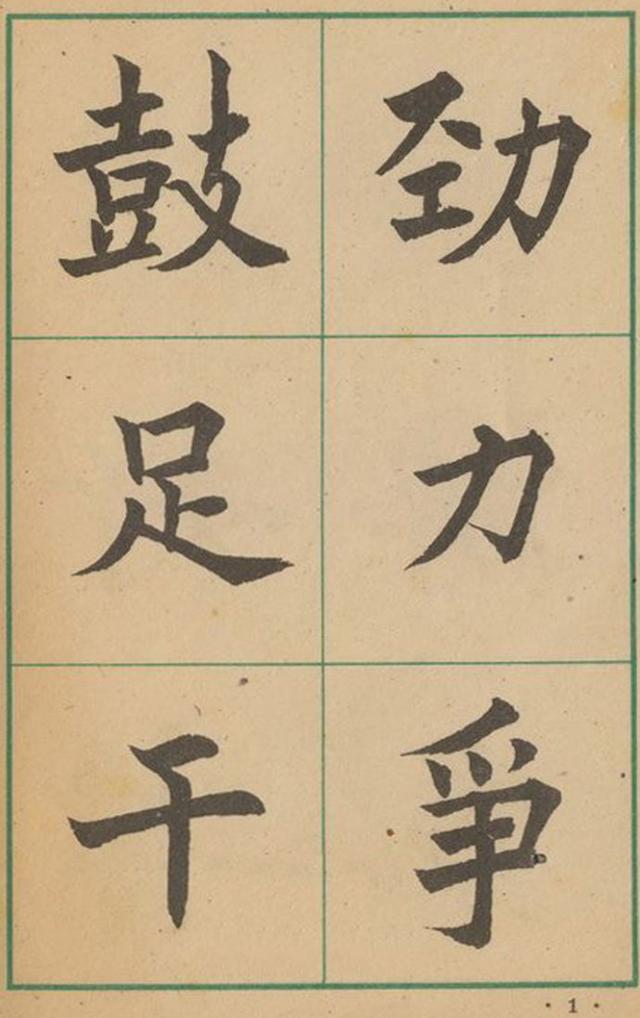 鼓足干
劲力爭
· 1 ·